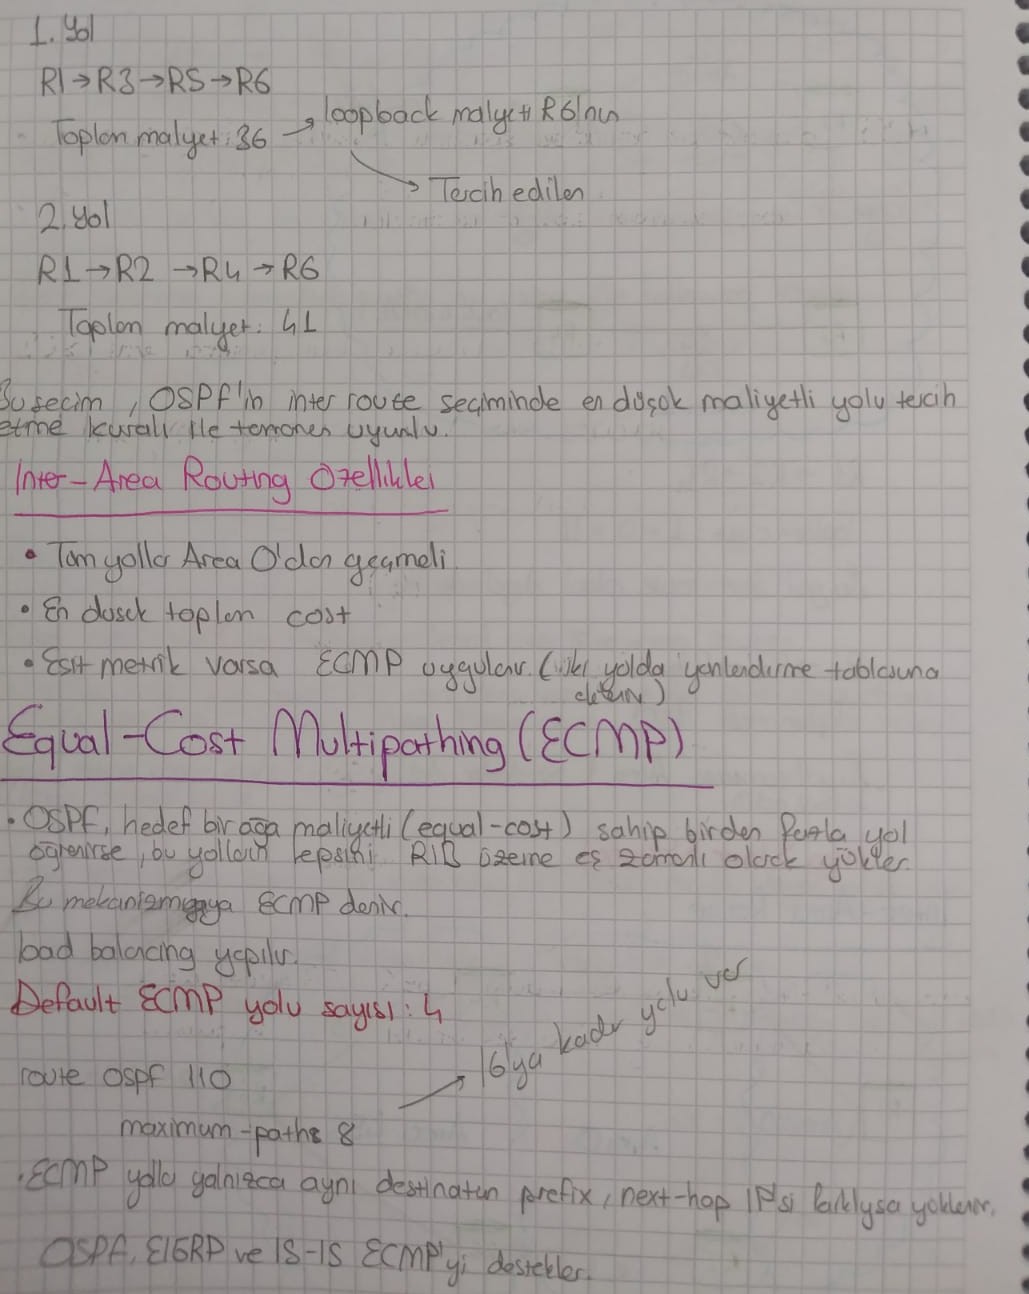 1. Yol
R1→R3→R5→R6
Toplam malyet: 36 → loopback malyeti R6'nın
→ Tercih edilen
2. yol
R1→R2→R4→R6
Toplam malyet: 41
Bu secim, OSPF'in inter route seçiminde en düşük maliyetli yolu tercih
etme kuralı ile tamamen uyumlu.
Inter-Area Routing Özellikleri
• Tüm yollar Area 0'dan geçmeli
• En düşük toplam cost
• Esit metrik varsa ECMP uygulanır. (iki yolda yönlendirme tablosuna
eklenir)
Equal-Cost Multipathing (ECMP)
• OSPF, hedef bir ağa maliyetli (equal-cost) sahip birden fazla yol
öğrenirse, bu yolların hepsini RIB üzerine eş zamanlı olarak yükler.
Bu mekanizmaya ECMP denir.
load balancing yapılır.
Default ECMP yolu sayısı: 4
route ospf 110
maximum-paths 8 → 16'ya kadar yolu var
• ECMP yolla yalnızca aynı destinatun prefix, next-hop IP'si farklıysa yüklenir.
OSPF, EIGRP ve IS-IS ECMP'yi destekler.